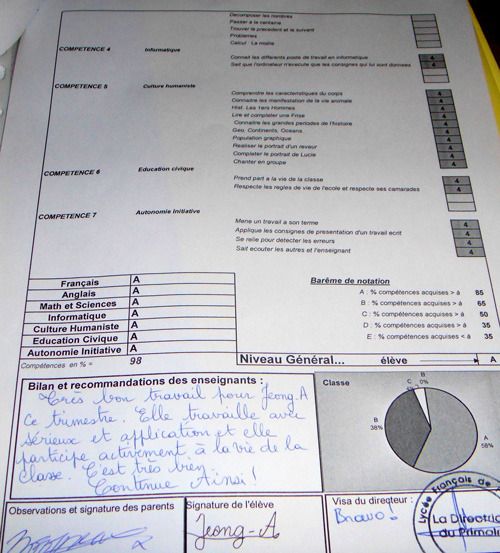 Decomposer les nombres
Passer a la centaine
Trouver le precedent et le suivant
Problemes
Calcul : La moitie
COMPETENCE 4 Informatique
Connait les differents poste de travail en informatique 4
Sait que l'ordinateur n'execute que les consignes qui lui sont donnees 4
COMPETENCE 5 Culture humaniste
Comprendre les caracteristiques du corps 4
Connaitre les manifestation de la vie animale 4
Hist. Les 1ers Hommes 4
Lire et completer une Frise 4
Connaitre les grandes periodes de l'histoire 4
Geo. Continents, Oceans 4
Population graphique 4
Realiser le portrait d'un reveur 4
Completer le portrait de Lucie 4
Chanter en groupe 4
COMPETENCE 6 Education civique
Prend part a la vie de la classe 4
Respecte les regles de vie de l'ecole et respecte ses camarades 4
COMPETENCE 7 Autonomie Initiative
Mene un travail a son terme 4
Applique les consignes de presentation d'un travail ecrit 4
Se relie pour detecter les erreurs 4
Sait ecouter les autres et l'enseignant 4
Français A
Anglais A
Math et Sciences A
Informatique A
Culture Humaniste A
Education Civique A
Autonomie Initiative A
Compétences en % = 98
Barême de notation
A : % compétences acquises > à 85
B : % compétences acquises > à 65
C : % compétences acquises > à 50
D : % compétences acquises > à 35
E : % compétences acquises < à 35
Niveau Général... élève A
Bilan et recommandations des enseignants :
Très bon travail pour Jeong.A
ce trimestre. Elle travaille avec
sérieux et application et elle
participe activement à la vie de la
classe. C'est très bien.
Continue Ainsi!
Classe
B
0%
C
B
38%
A
58%
Observations et signature des parents
Signature de l'élève
Jeong-A
Visa du directeur :
Bravo!
Lycée Français de
La Directrice
du Primaire